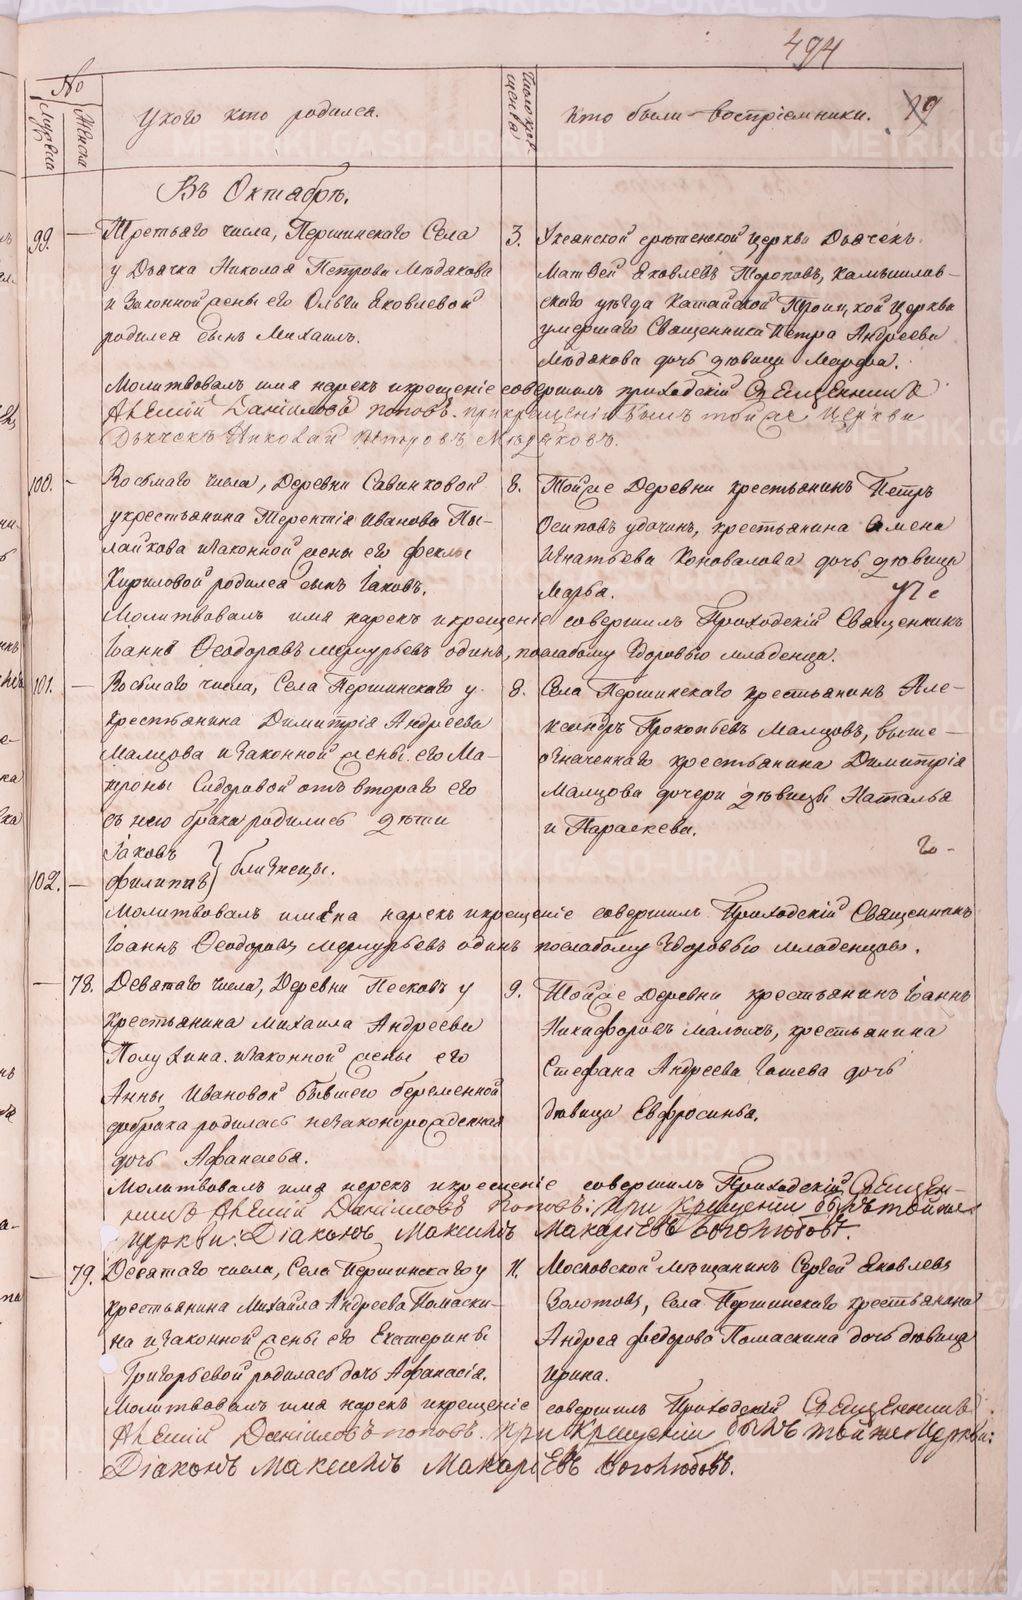 494
№
Мужска
Женска
У кого кто родился.
Число крещенiя
Кто были воспрiемники.
79
Въ Октябрѣ.
99. — Третьяго числа, Першинскаго Села
у Дьячка Николая Петрова Мѣдякова
и законной жены его Ольги Яковлевой
родился сынъ Михаилъ.
3. Уксянской срѣтенской церкви Дьячекъ
Матвей Яковлевъ Тороповъ, Камышлов-
скаго уѣзда Катайской Троицкой церкви
умершаго Священника Петра Андреева
Мѣдякова дочь дѣвица Марфа.
Молитвовалъ имя нарекъ и крещенiе совершилъ приходскiй Священникъ
Данiиловъ Поповъ. при крещенiи былъ той же Церкви
Дьячекъ Николай Петровъ Мѣдяковъ.
100. — Восьмаго числа, Деревни Савинковой
у крестьянина Терентiя Иванова Пы-
лайкова и законной жены его Феклы
Кириловой родился сынъ Iаковъ.
8. Той же Деревни крестьянинъ Петръ
Осиповъ Удачинъ, крестьянина Семена
Игнатьева Коновалова дочь дѣвица
Марѳа.
Молитвовалъ имя нарекъ и крещенiе совершилъ Приходскiй Священникъ
Iоаннъ Ѳеодоровъ Меркурьевъ одинъ, по слабому здоровью младенца.
101. — Восьмаго числа, Села Першинскаго у
крестьянина Димитрiя Андреева
Малцова и законной жены его Ма-
троны Сидоровой отъ втораго его
съ нею брака родились дѣти
Iаковъ
102. — Филиппъ } близнецы.
8. Села Першинскаго крестьянинъ Але-
ксандръ Прокопьевъ Малцовъ, выше-
означеннаго крестьянина Димитрiя
Малцова дочери дѣвицы Наталья
и Параскева.
Молитвовалъ имена нарекъ и крещенiе совершилъ Приходскiй Священникъ
Iоаннъ Ѳеодоровъ Меркурьевъ одинъ по слабому здоровью младенцовъ.
— 78. Девятаго числа, Деревни Песковъ у
крестьянина Михаила Андреева
Полухина и законной жены его
Анны Ивановой бывшего беременной
до брака родилась незаконорожденная
дочь Афанасья.
9. Той же Деревни крестьянинъ Iоаннъ
Никифоровъ Малыхъ, крестьянина
Стефана Андреева Гашева дочь
дѣвица Евфросинья.
Молитвовалъ имя нарекъ и крещенiе совершилъ Приходскiй Священ-
никъ Данiиловъ Поповъ: при крещенiи былъ той же
церкви: Дiаконъ Максимъ Макарiевъ Боголюбовъ.
— 79. Девятаго числа, Села Першинскаго у
крестьянина Михайла Андреева Помаски-
на и законной жены его Екатерины
Григорьевой родилась дочь Афанасiя.
11. Московской мѣщанинъ Сергей Яковлевъ
Золотовъ, Села Першинскаго крестьянина
Андрея Федорова Помаскина дочь дѣвица
Ирина.
Молитвовалъ имя нарекъ и крещенiе совершилъ Приходскiй Священникъ
Данiиловъ Поповъ. При крещенiи былъ той же Церкви:
Дiаконъ Максимъ Макарiевъ Боголюбовъ.
METRIKI.GASO-URAL.RU